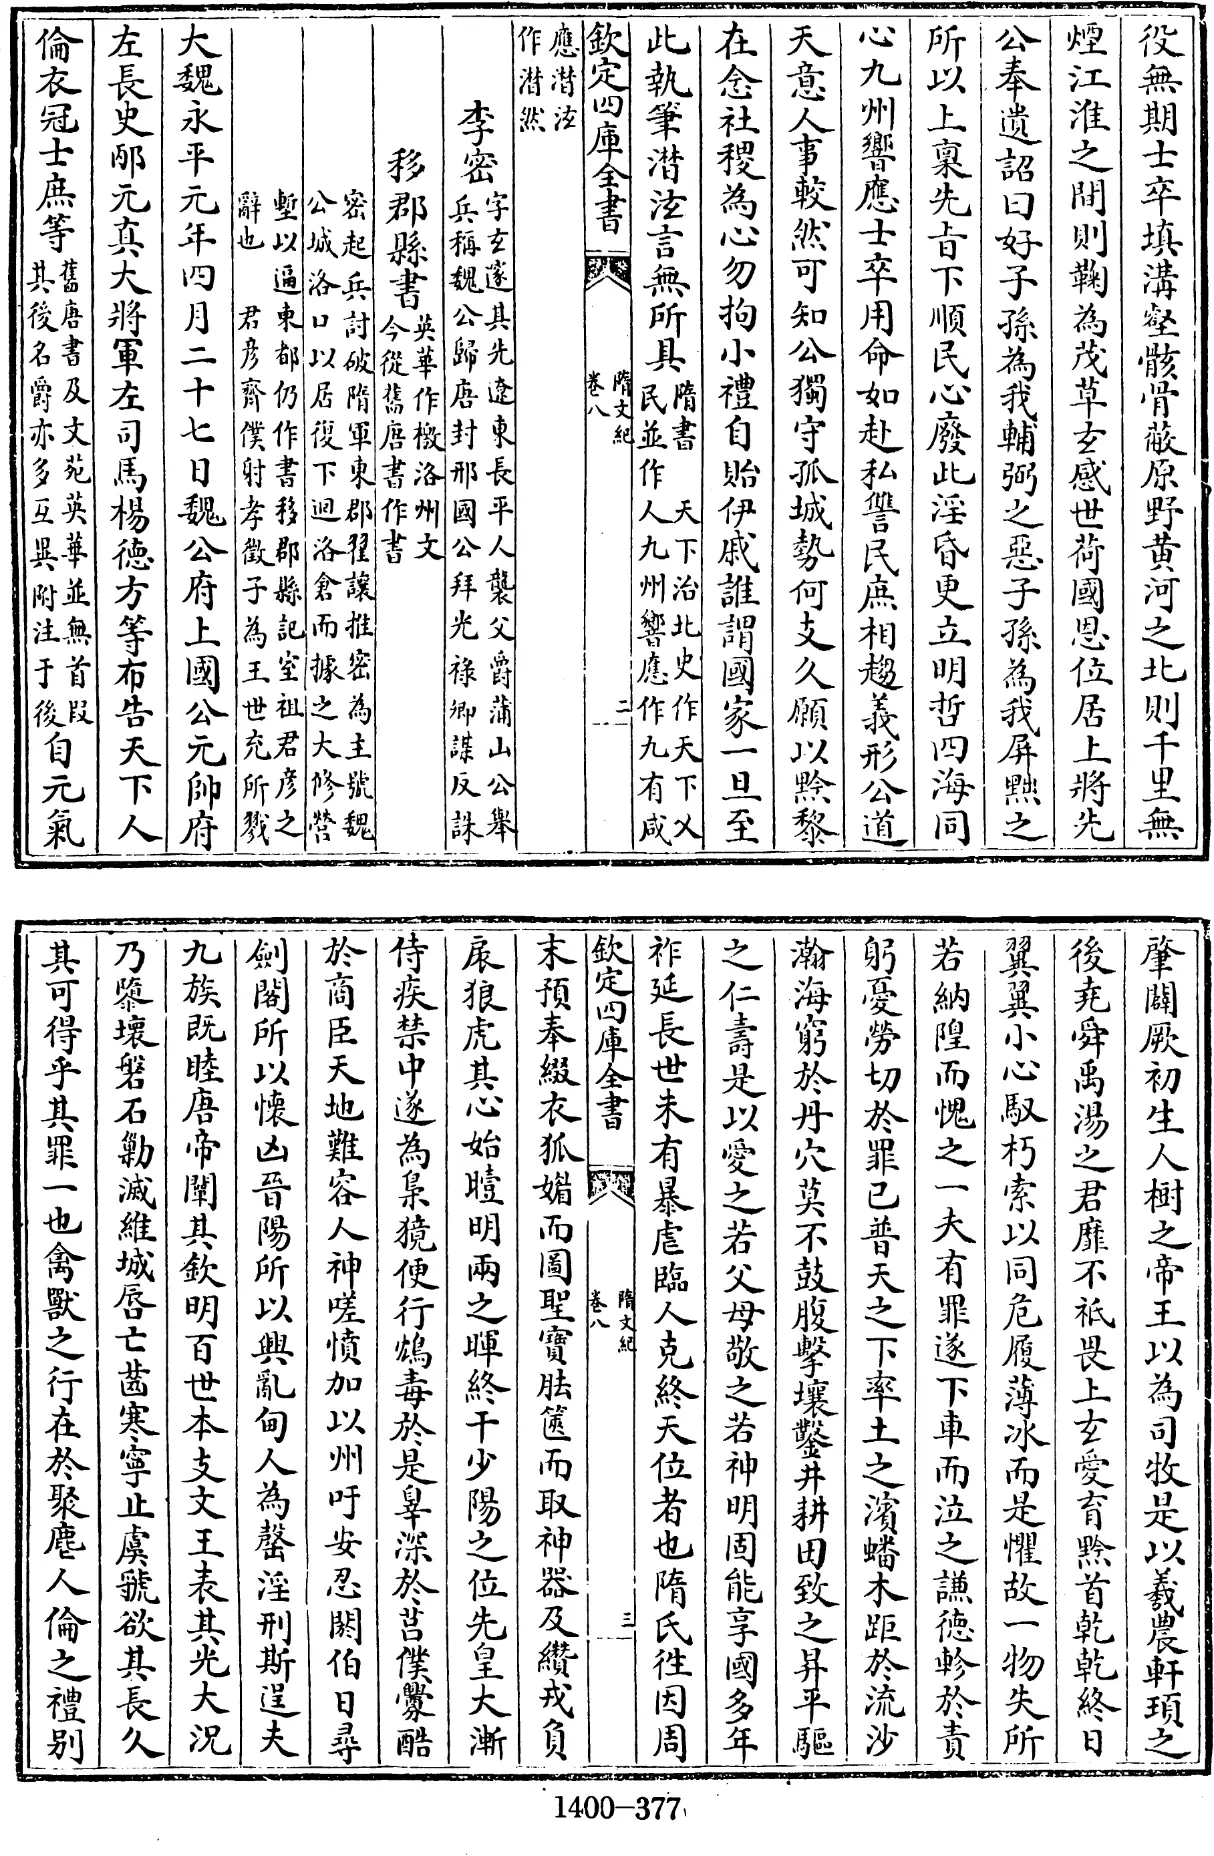 役無期士卒填溝壑骸骨蔽原野黄河之北則千里無
煙江淮之間則鞠為茂草玄感世荷國恩位居上將先
公奉遺詔曰好子孫為我輔弼之惡子孫為我屏黜之
所以上稟先旨下順民心廢此淫昏更立明哲四海同
心九州響應士卒用命如赴私讐民庶相趨義形公道
天意人事較然可知公獨守孤城勢何支久願以黔黎
在念社稷為心勿拘小禮自貽伊戚誰謂國家一旦至
此執筆潸泫言無所具
隋書　天下治北史作天下乂
民並作人九州響應作九有咸
欽定四庫全書
隋文紀
卷八
二
應潸泫
作潸然
李密
字玄邃其先遼東長平人襲父爵蒲山公舉
兵稱魏公歸唐封邢國公拜光祿卿謀反誅
移郡縣書
英華作檄洛州文
今從舊唐書作書
密起兵討破隋軍東郡翟讓推密為主號魏
公城洛口以居復下迴洛倉而據之大修營
塹以逼東都仍作書移郡縣記室祖君彦之
辭也　君彦齊僕射孝徵子為王世充所戮
大魏永平元年四月二十七日魏公府上國公元帥府
左長史邴元真大將軍左司馬楊德方等布告天下人
倫衣冠士庶等
舊唐書及文苑英華並無首段
其後名爵亦多互異附注于後
自元氣
肇闢厥初生人樹之帝王以為司牧是以羲農軒頊之
後堯舜禹湯之君靡不祗畏上玄愛育黔首乾乾終日
翼翼小心馭朽索以同危履薄冰而是懼故一物失所
若納隍而愧之一夫有罪遂下車而泣之謙德軫於責
躬憂勞切於罪己普天之下率土之濱蟠木距於流沙
瀚海窮於丹穴莫不鼓腹擊壤鑿井耕田致之昇平驅
之仁壽是以愛之若父母敬之若神明固能享國多年
祚延長世未有暴虐臨人克終天位者也隋氏徃因周
欽定四庫全書
隋文紀
卷八
三
末預奉綴衣狐媚而圖聖寶胠篋而取神器及纘戎負
扆狼虎其心始曀明兩之暉終干少陽之位先皇大漸
侍疾禁中遂為梟獍便行鴆毒於是辠深於莒僕釁酷
於商臣天地難容人神嗟憤加以州吁安忍閼伯日尋
劍閣所以懷凶晉陽所以興亂甸人為罄淫刑斯逞夫
九族既睦唐帝闡其欽明百世本支文王表其光大況
乃隳壞磐石勦滅維城唇亡齒寒寧止虞虢欲其長久
其可得乎其罪一也禽獸之行在於聚麀人倫之禮别
1400—377